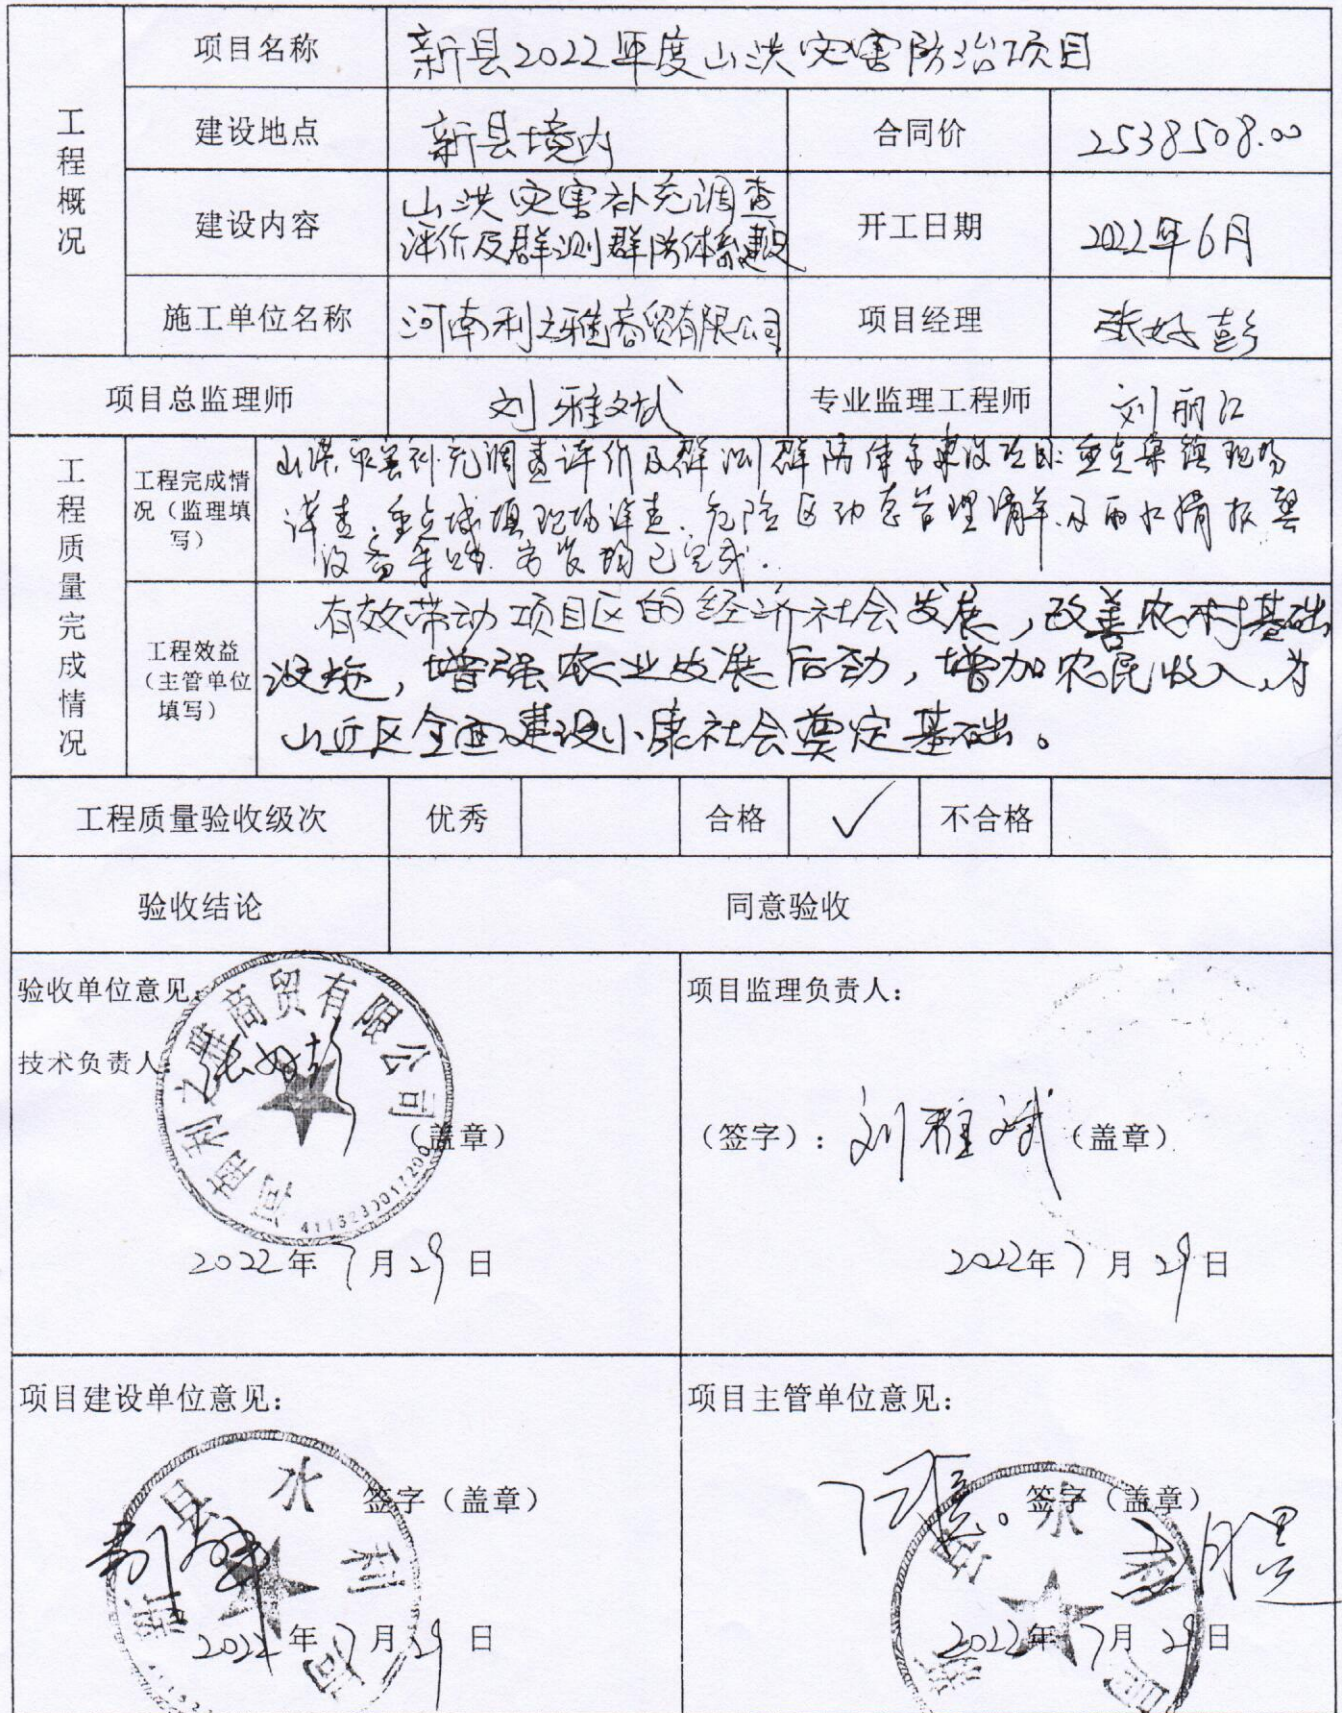 工程概况
项目名称 新县2022年度山洪灾害防治项目
建设地点 新县境内 合同价 2538508.00
建设内容 山洪灾害补充调查
评价及群测群防体系建设 开工日期 2022年6月
施工单位名称 河南利之雅商贸有限公司 项目经理 张好彭
项目总监理师 刘雅斌 专业监理工程师 刘丽江
工程质量完成情况
工程完成情况（监理填写）
山洪灾害补充调查评价及群测群防体系建设项目:重点集镇现场
详查、重点城镇现场详查、危险区动态管理清单及雨水情报警
设备采购、安装均已完成.
工程效益（主管单位填写）
有效带动项目区的经济社会发展，改善农村基础
设施，增强农业发展后劲，增加农民收入,为
山丘区全面建设小康社会奠定基础。
工程质量验收级次 优秀 合格 ✓ 不合格
验收结论 同意验收
验收单位意见:
技术负责人:
河南利之雅商贸有限公司
（盖章）
2022年7月29日
项目监理负责人：
（签字）：刘雅斌（盖章）
2022年7月29日
项目建设单位意见：
签字（盖章）
新县水利局
2022年7月29日
项目主管单位意见：
同意。
签字（盖章）
新县水利局
2022年7月29日